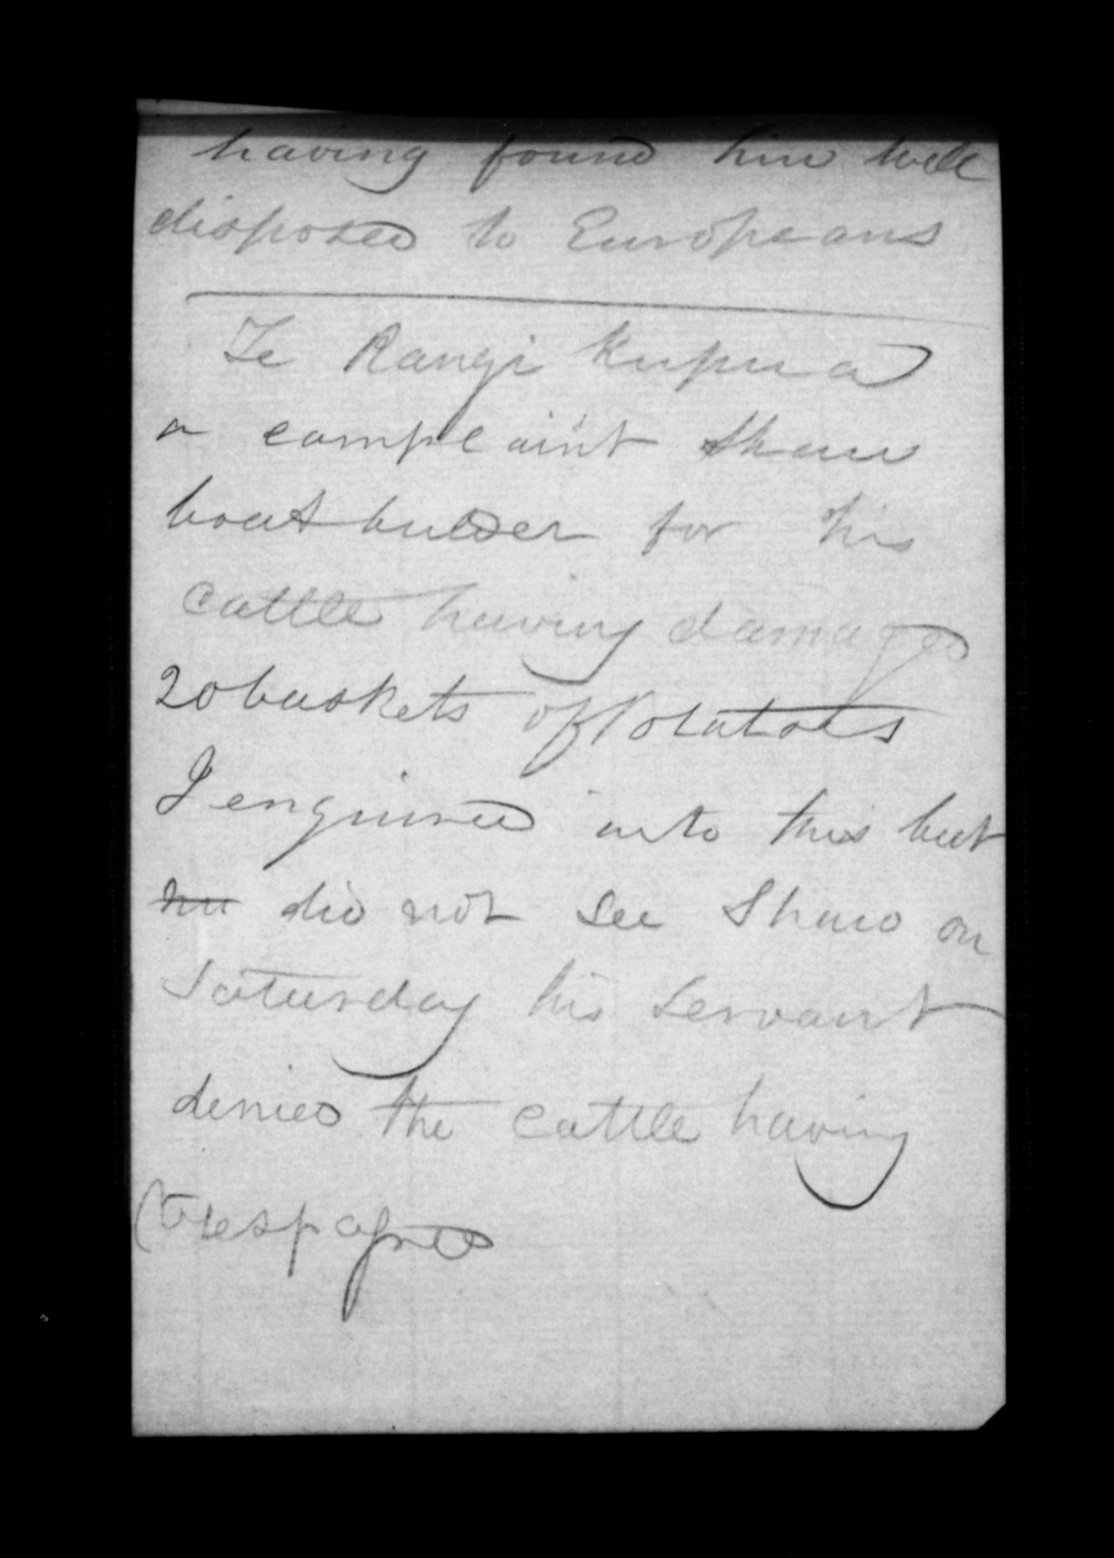 having found him well
disposed to Europeans
Te Rangi Kupua
a complaint Shaw
boat builder for his
cattle having damaged
20 baskets of Potatoes
I enquired into this but
did not see Shaw on
Saturday his servant
denies the cattle having
trespassed